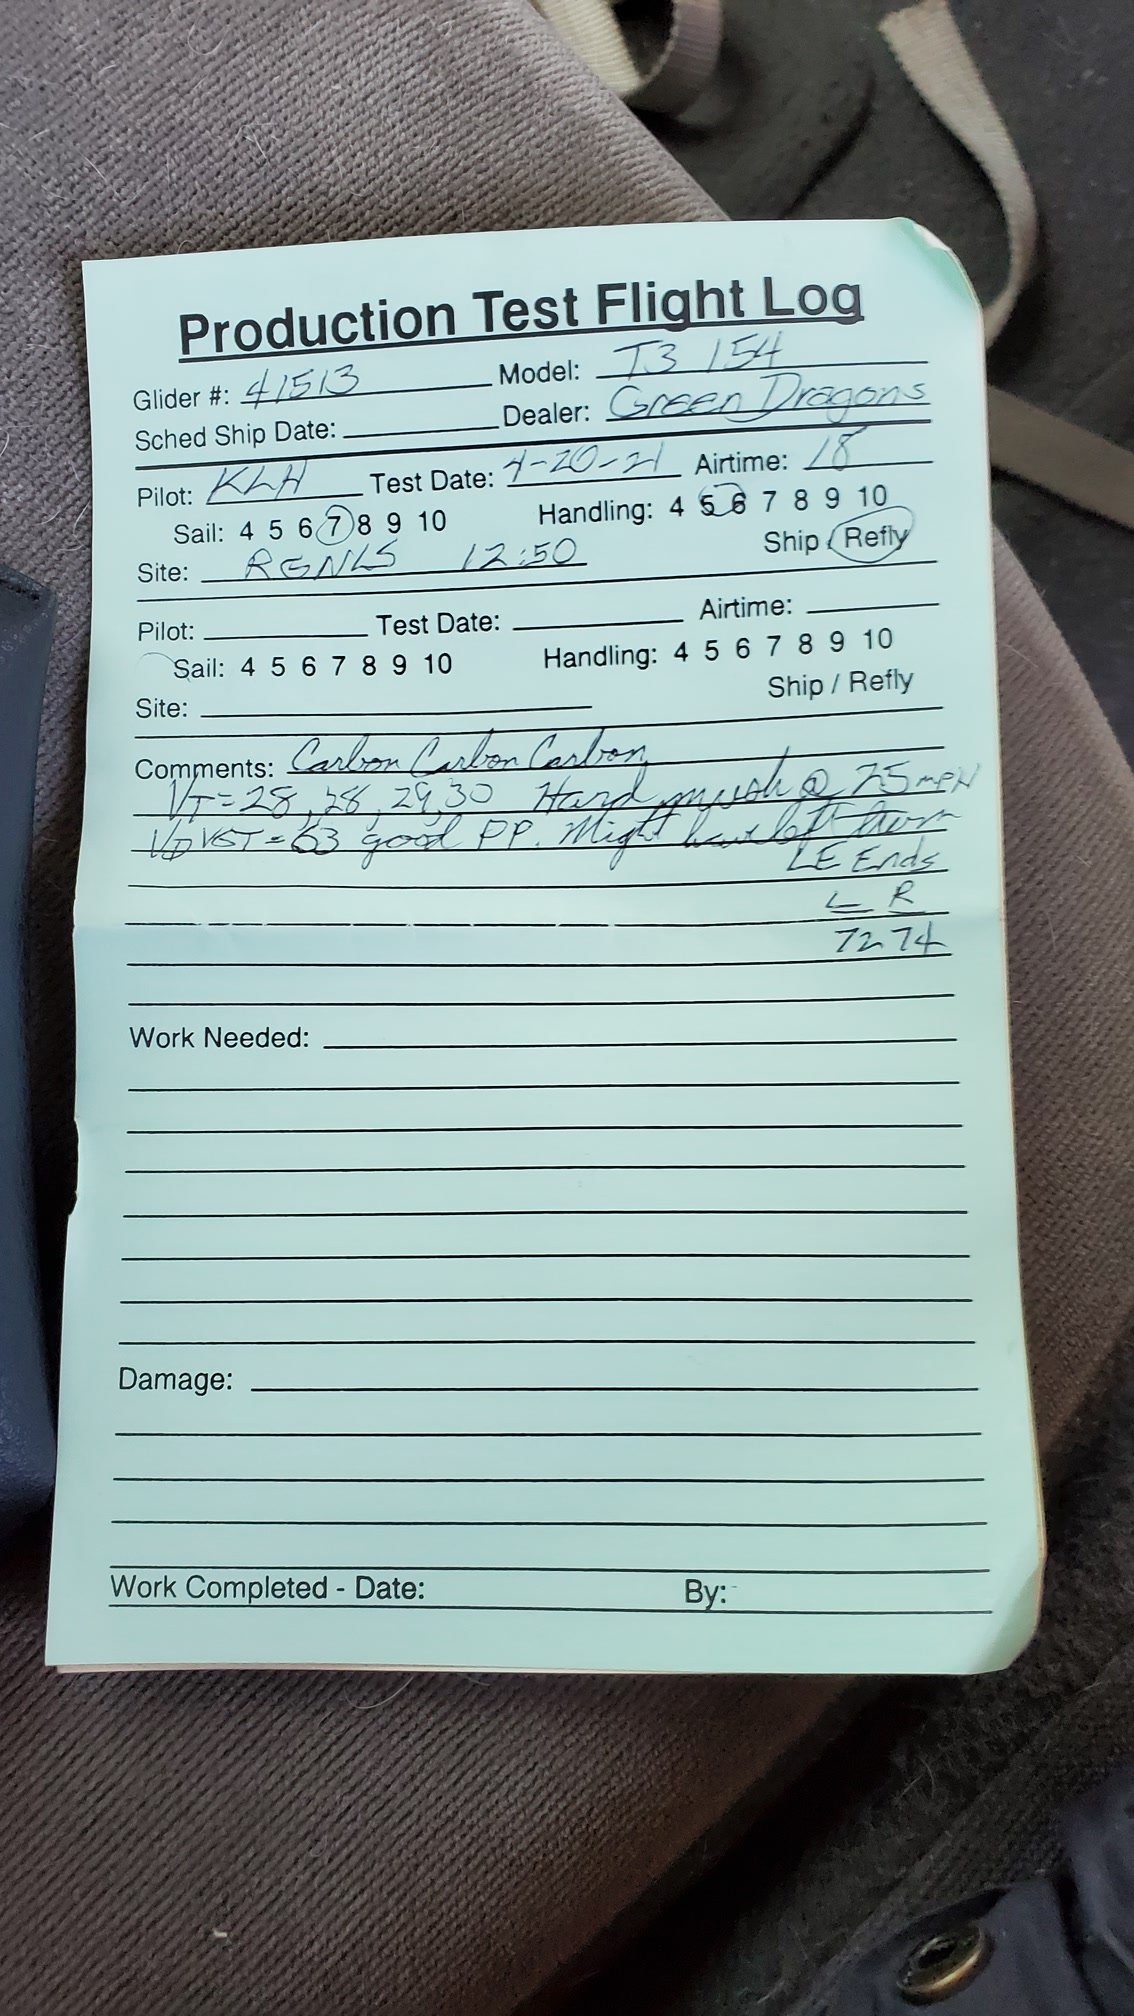 Production Test Flight Log
Glider #: 41513 Model: T3 154
Sched Ship Date: Dealer: Green Dragons
Pilot: KLH Test Date: 4-20-21 Airtime: 18
Sail: 4 5 6 7 8 9 10 Handling: 4 5 6 7 8 9 10
Ship / Refly
Site: RGNLS 12:50
Pilot: Test Date: Airtime:
Sail: 4 5 6 7 8 9 10 Handling: 4 5 6 7 8 9 10
Ship / Refly
Site:
Comments: Carbon Carbon Carbon
VT=28, 28, 29, 30 Hard mush @ 25 MPH
VD VGT = 63 good PP. Might have left turn
LE Ends
L R
72 74
Work Needed:
Damage:
Work Completed - Date: By: